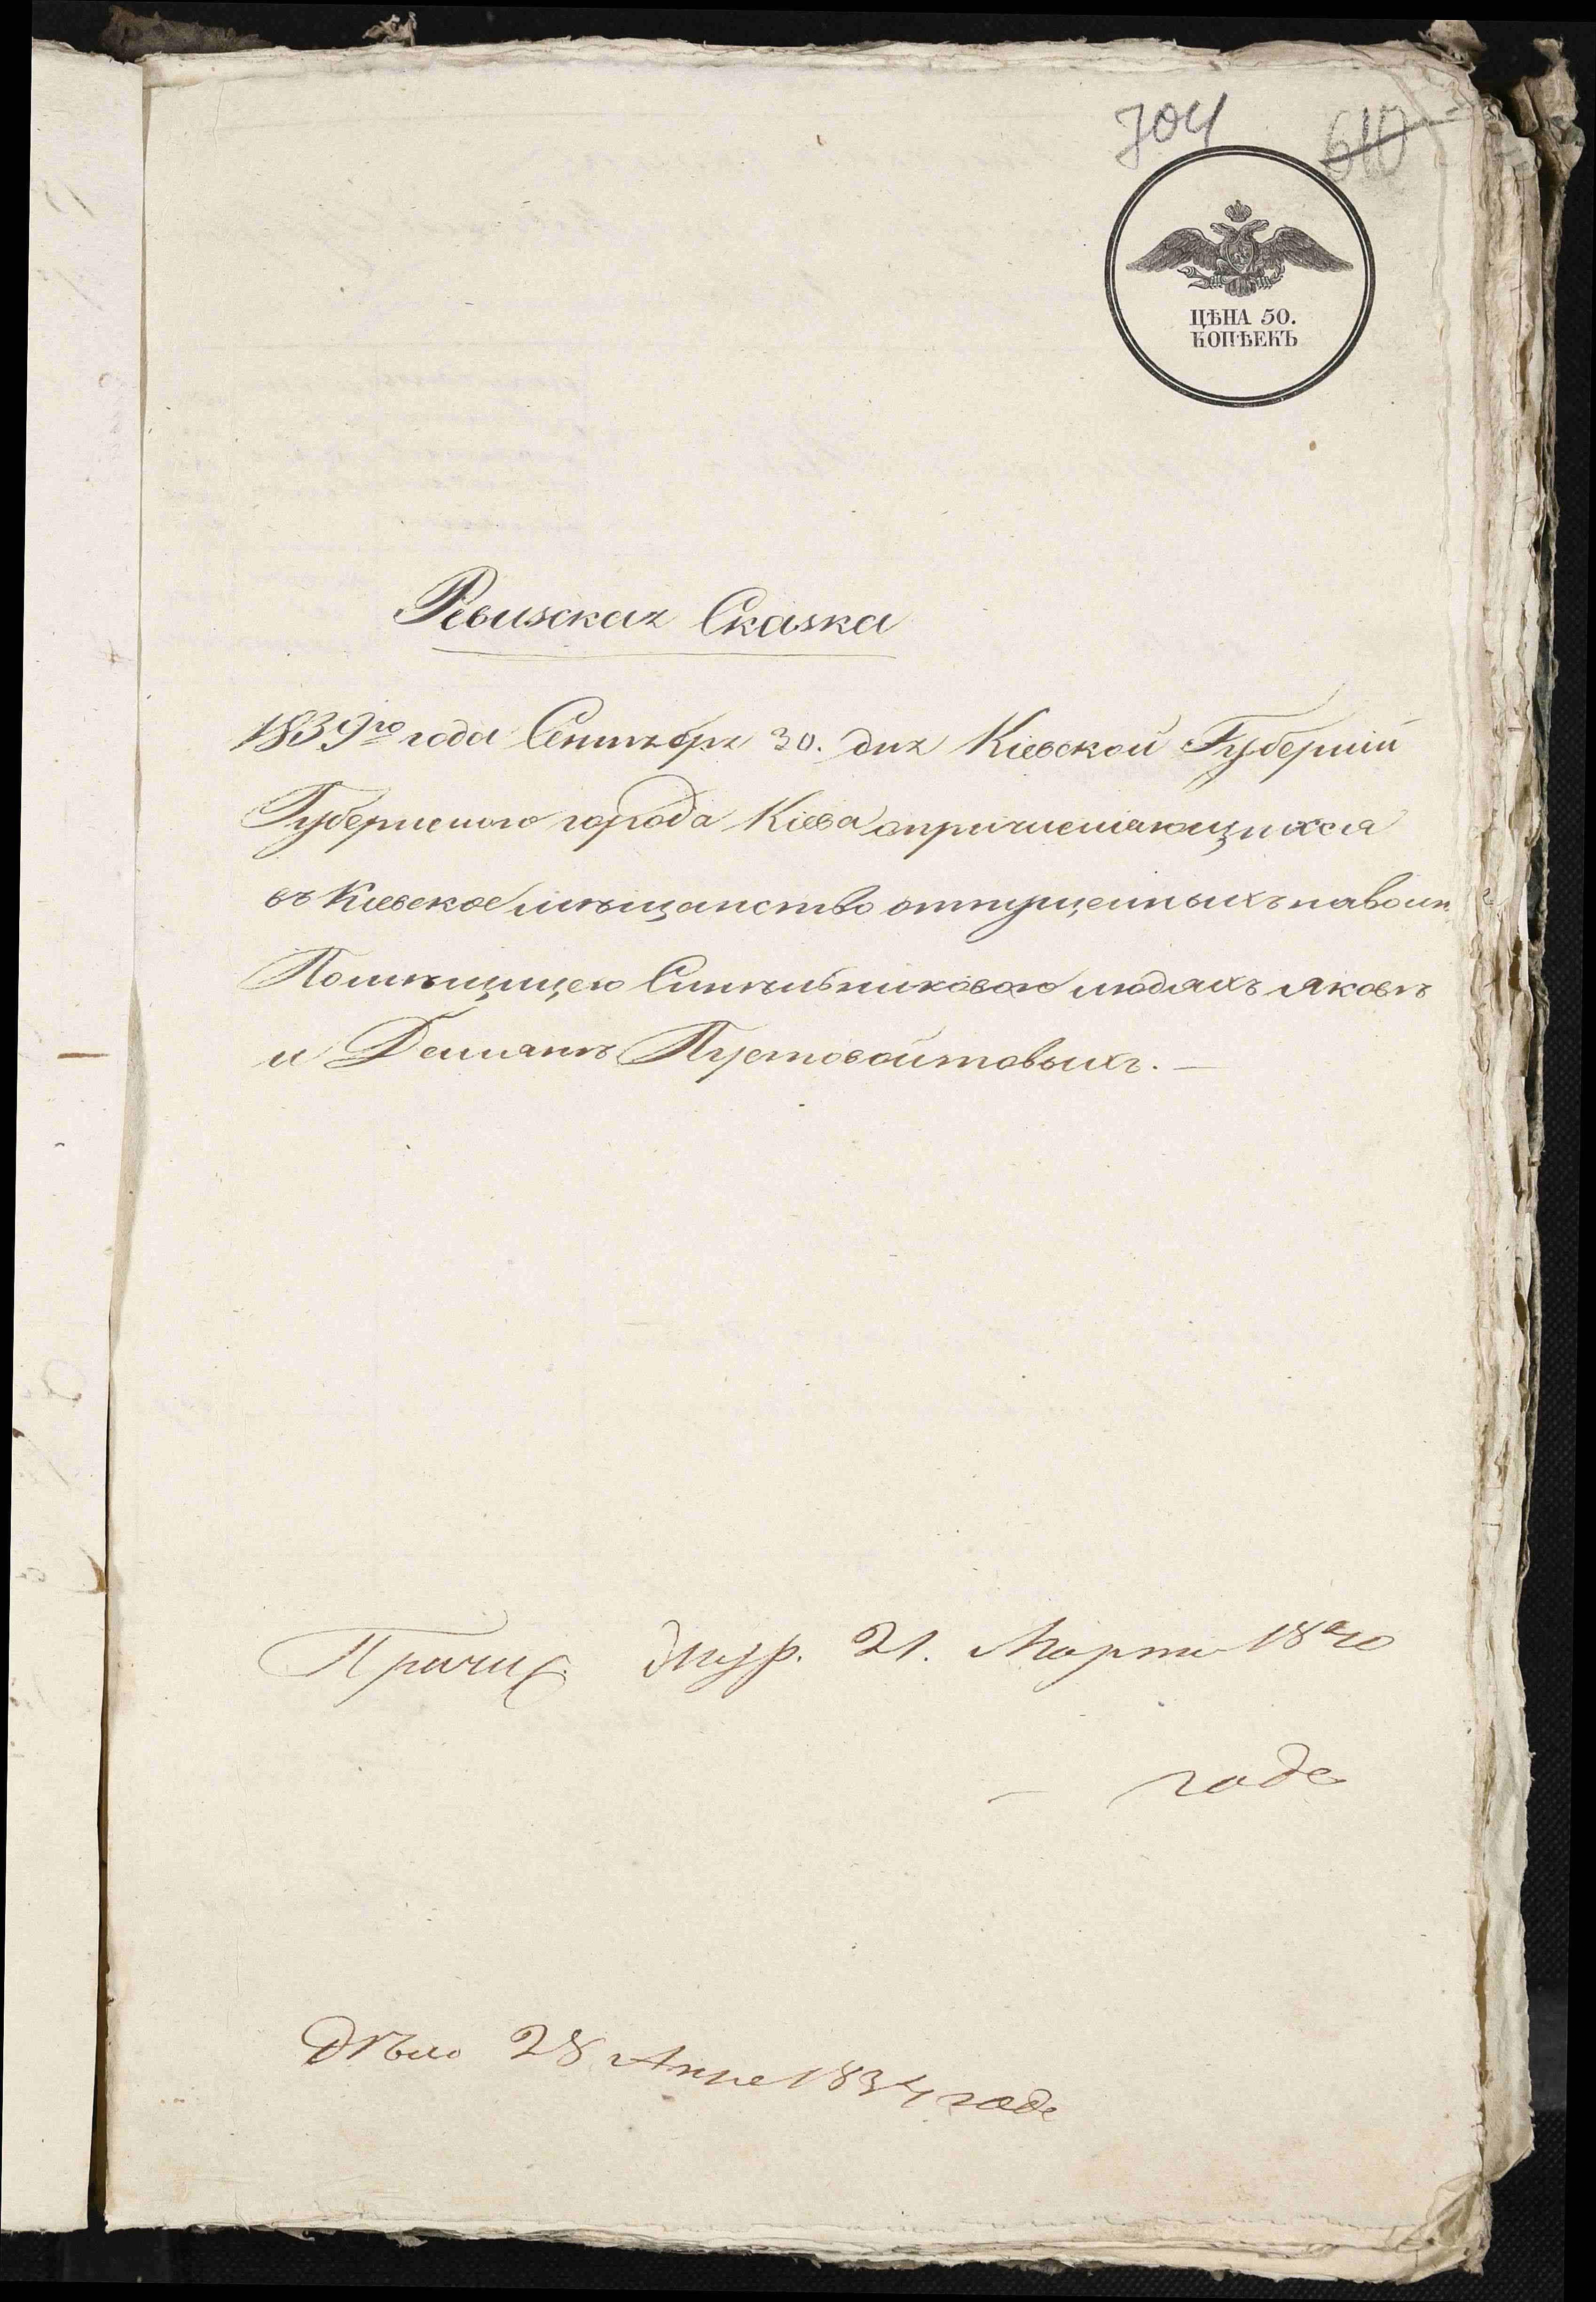 704
610
ЦѢНА 50.
КОПѢЕКЪ
Ревизская Сказка
1839го года Сентября 30. дня Кіевской Губерніи
Губернского города Кіева опричисляющихся
въ Кіевское мѣщанство отпущенныхъ наволю
Помѣщицею Синельниковою людяхъ Яковѣ
и Демьянѣ Пустовойтовыхъ. —
Причис. Жур. 21. Марта 1840
— года
Дѣло 28 Апре 1834 года